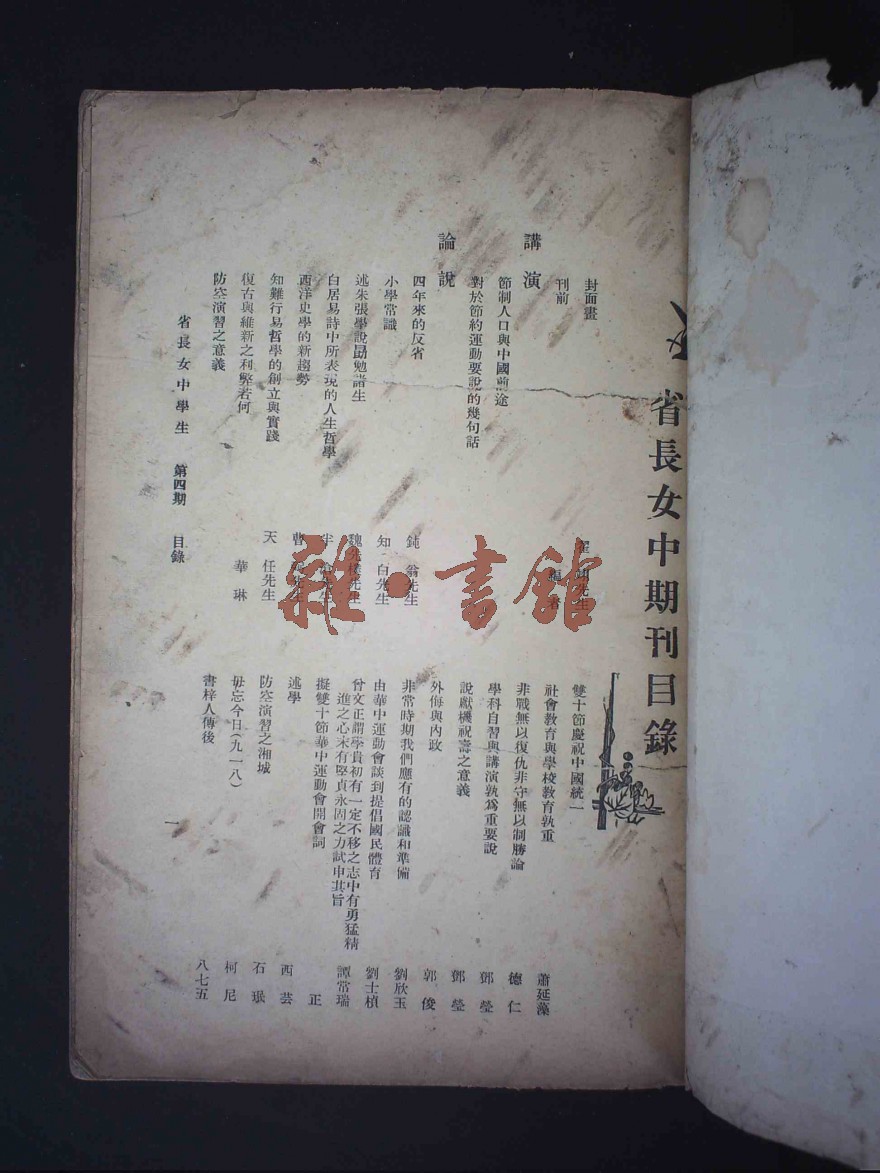 省長女中期刊目錄
封面畫 先生
刊前 編者
講演
節制人口與中國前途
對於節約運動要說的幾句話
論說
四年來的反省 鈍翁先生
小學常識 知白先生
述朱張學說勗勉諸生 魏先樸先生
白居易詩中所表現的人生哲學 先生
西洋史學的新趨勢 曹 先生
知難行易哲學的創立與實踐 天任先生
復古與維新之利弊若何 華琳
防空演習之意義
雙十節慶祝中國統一
社會教育與學校教育孰重 蕭延藻
非戰無以復仇非守無以制勝論 德仁
學科自習與講演孰為重要說 鄧瑩
說獻機祝壽之意義 鄧瑩
外侮與內政 郭俊
非常時期我們應有的認識和準備 劉欣玉
由華中運動會談到提倡國民體育 劉士楨
曾文正謂學貴初有一定不移之志中有勇猛精
進之心末有堅貞永固之力試申其旨 譚常瑞
擬雙十節華中運動會開會詞 正
述學 西芸
防空演習之湘城 石珉
毋忘今日(九一八) 柯尼
書梓人傳後 八七五
省長女中學生 第四期 目錄
一
雜·書館